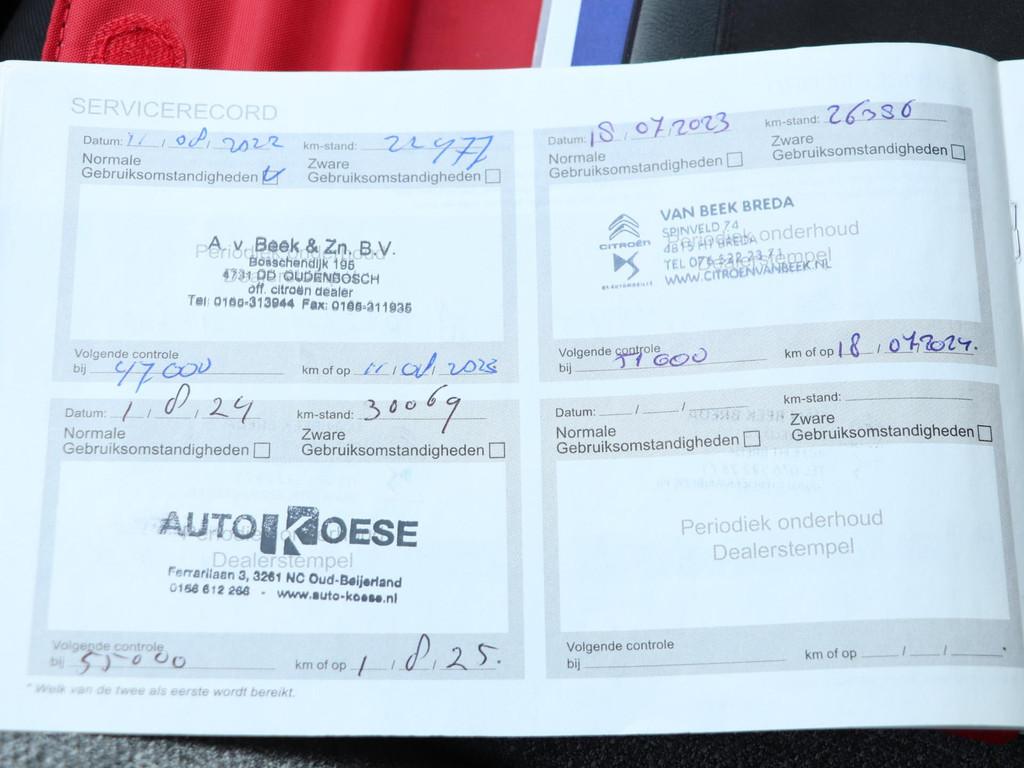 SERVICERECORD
Datum: 11 / 08 / 2022 km-stand: 22477
Normale Gebruiksomstandigheden
Zware Gebruiksomstandigheden
Periodiek onderhoud
Dealerstempel
A. v. Beek & Zn. B.V.
Bosschendijk 195
4731 DD OUDENBOSCH
off. citroën dealer
Tel: 0165-313944 Fax: 0165-311935
Volgende controle
bij 47000 km of op 11 / 08 / 2023
Datum: 18 / 07 / 2023 km-stand: 26386
Normale Gebruiksomstandigheden
Zware Gebruiksomstandigheden
Periodiek onderhoud
Dealerstempel
CITROËN
DS AUTOMOBILES
VAN BEEK BREDA
SPINVELD 74
4815 HT BREDA
TEL 076 522 23 71
WWW.CITROENVANBEEK.NL
Volgende controle
bij 51000 km of op 18 / 07 / 2024.
Datum: 1 / 8 / 24 km-stand: 30069
Normale Gebruiksomstandigheden
Zware Gebruiksomstandigheden
Dealerstempel
AUTO KOESE
Ferrarilaan 3, 3261 NC Oud-Beijerland
0186 612 266 - www.auto-koese.nl
Volgende controle
bij 55000 km of op 1 / 8 / 25.
Datum: / / km-stand:
Normale Gebruiksomstandigheden
Zware Gebruiksomstandigheden
Periodiek onderhoud
Dealerstempel
Volgende controle
bij km of op / / *
* Welk van de twee als eerste wordt bereikt.